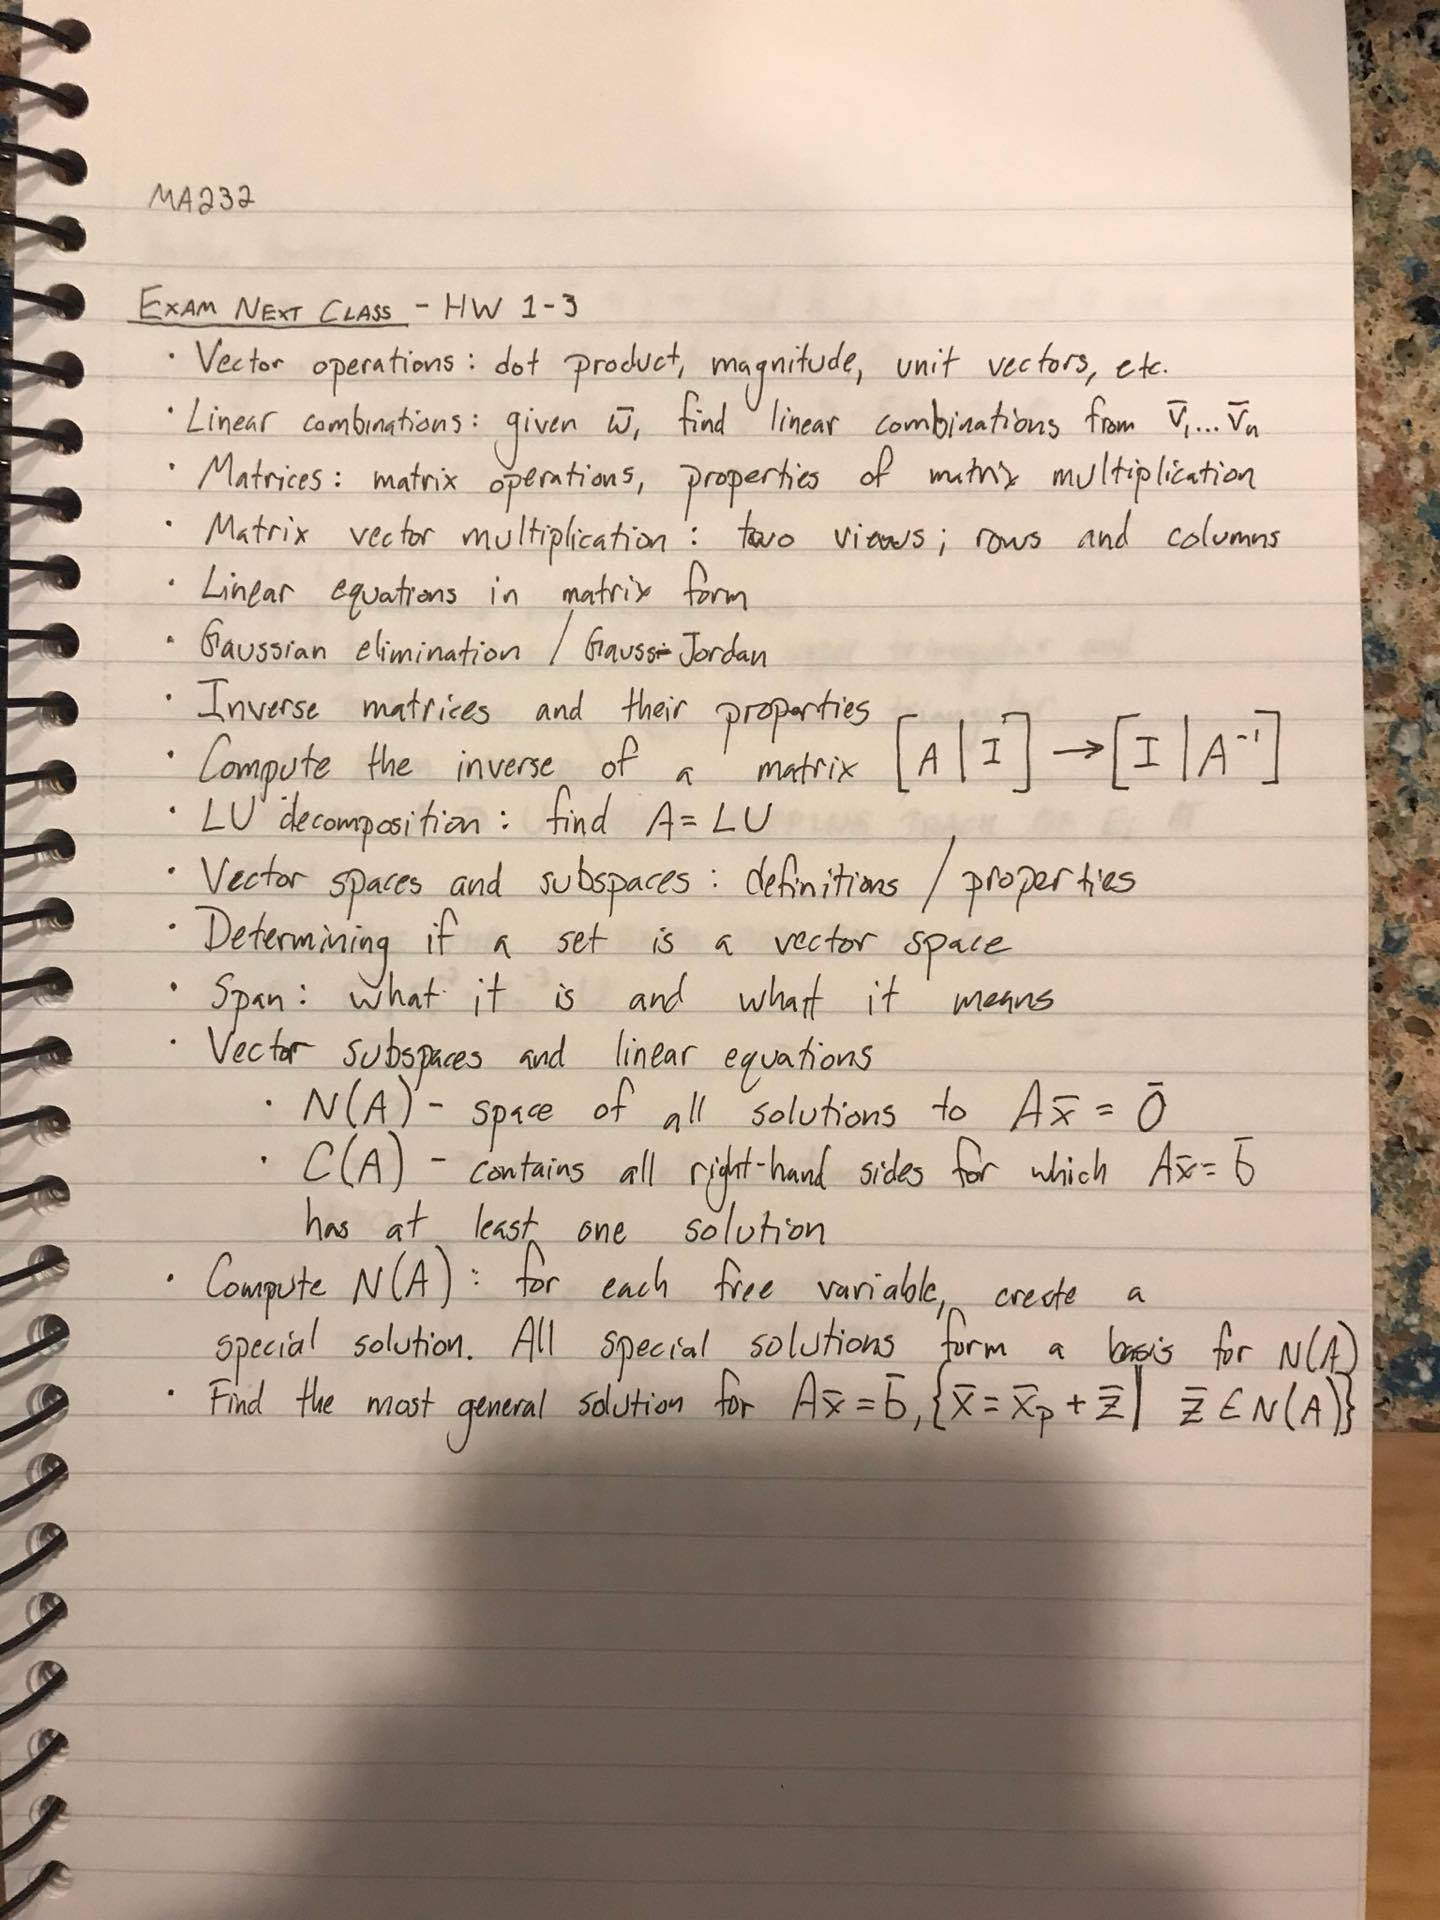 MA232
EXAM NEXT CLASS - HW 1-3
· Vector operations: dot product, magnitude, unit vectors, etc.
· Linear combinations: given w̄, find linear combinations from v̄₁...v̄ₙ
· Matrices: matrix operations, properties of matrix multiplication
· Matrix vector multiplication: two views; rows and columns
· Linear equations in matrix form
· Gaussian elimination / Gauss-Jordan
· Inverse matrices and their properties
· Compute the inverse of a matrix [A | I] → [I | A⁻¹]
· LU decomposition: find A = LU
· Vector spaces and subspaces: definitions / properties
· Determining if a set is a vector space
· Span: what it is and what it means
· Vector subspaces and linear equations
· N(A) - space of all solutions to Ax̄ = 0̄
· C(A) - contains all right-hand sides for which Ax̄ = b̄
has at least one solution
· Compute N(A): for each free variable, create a
special solution. All special solutions form a basis for N(A)
· Find the most general solution for Ax̄ = b̄, {x̄ = x̄ₚ + z̄ | z̄ ∈ N(A)}